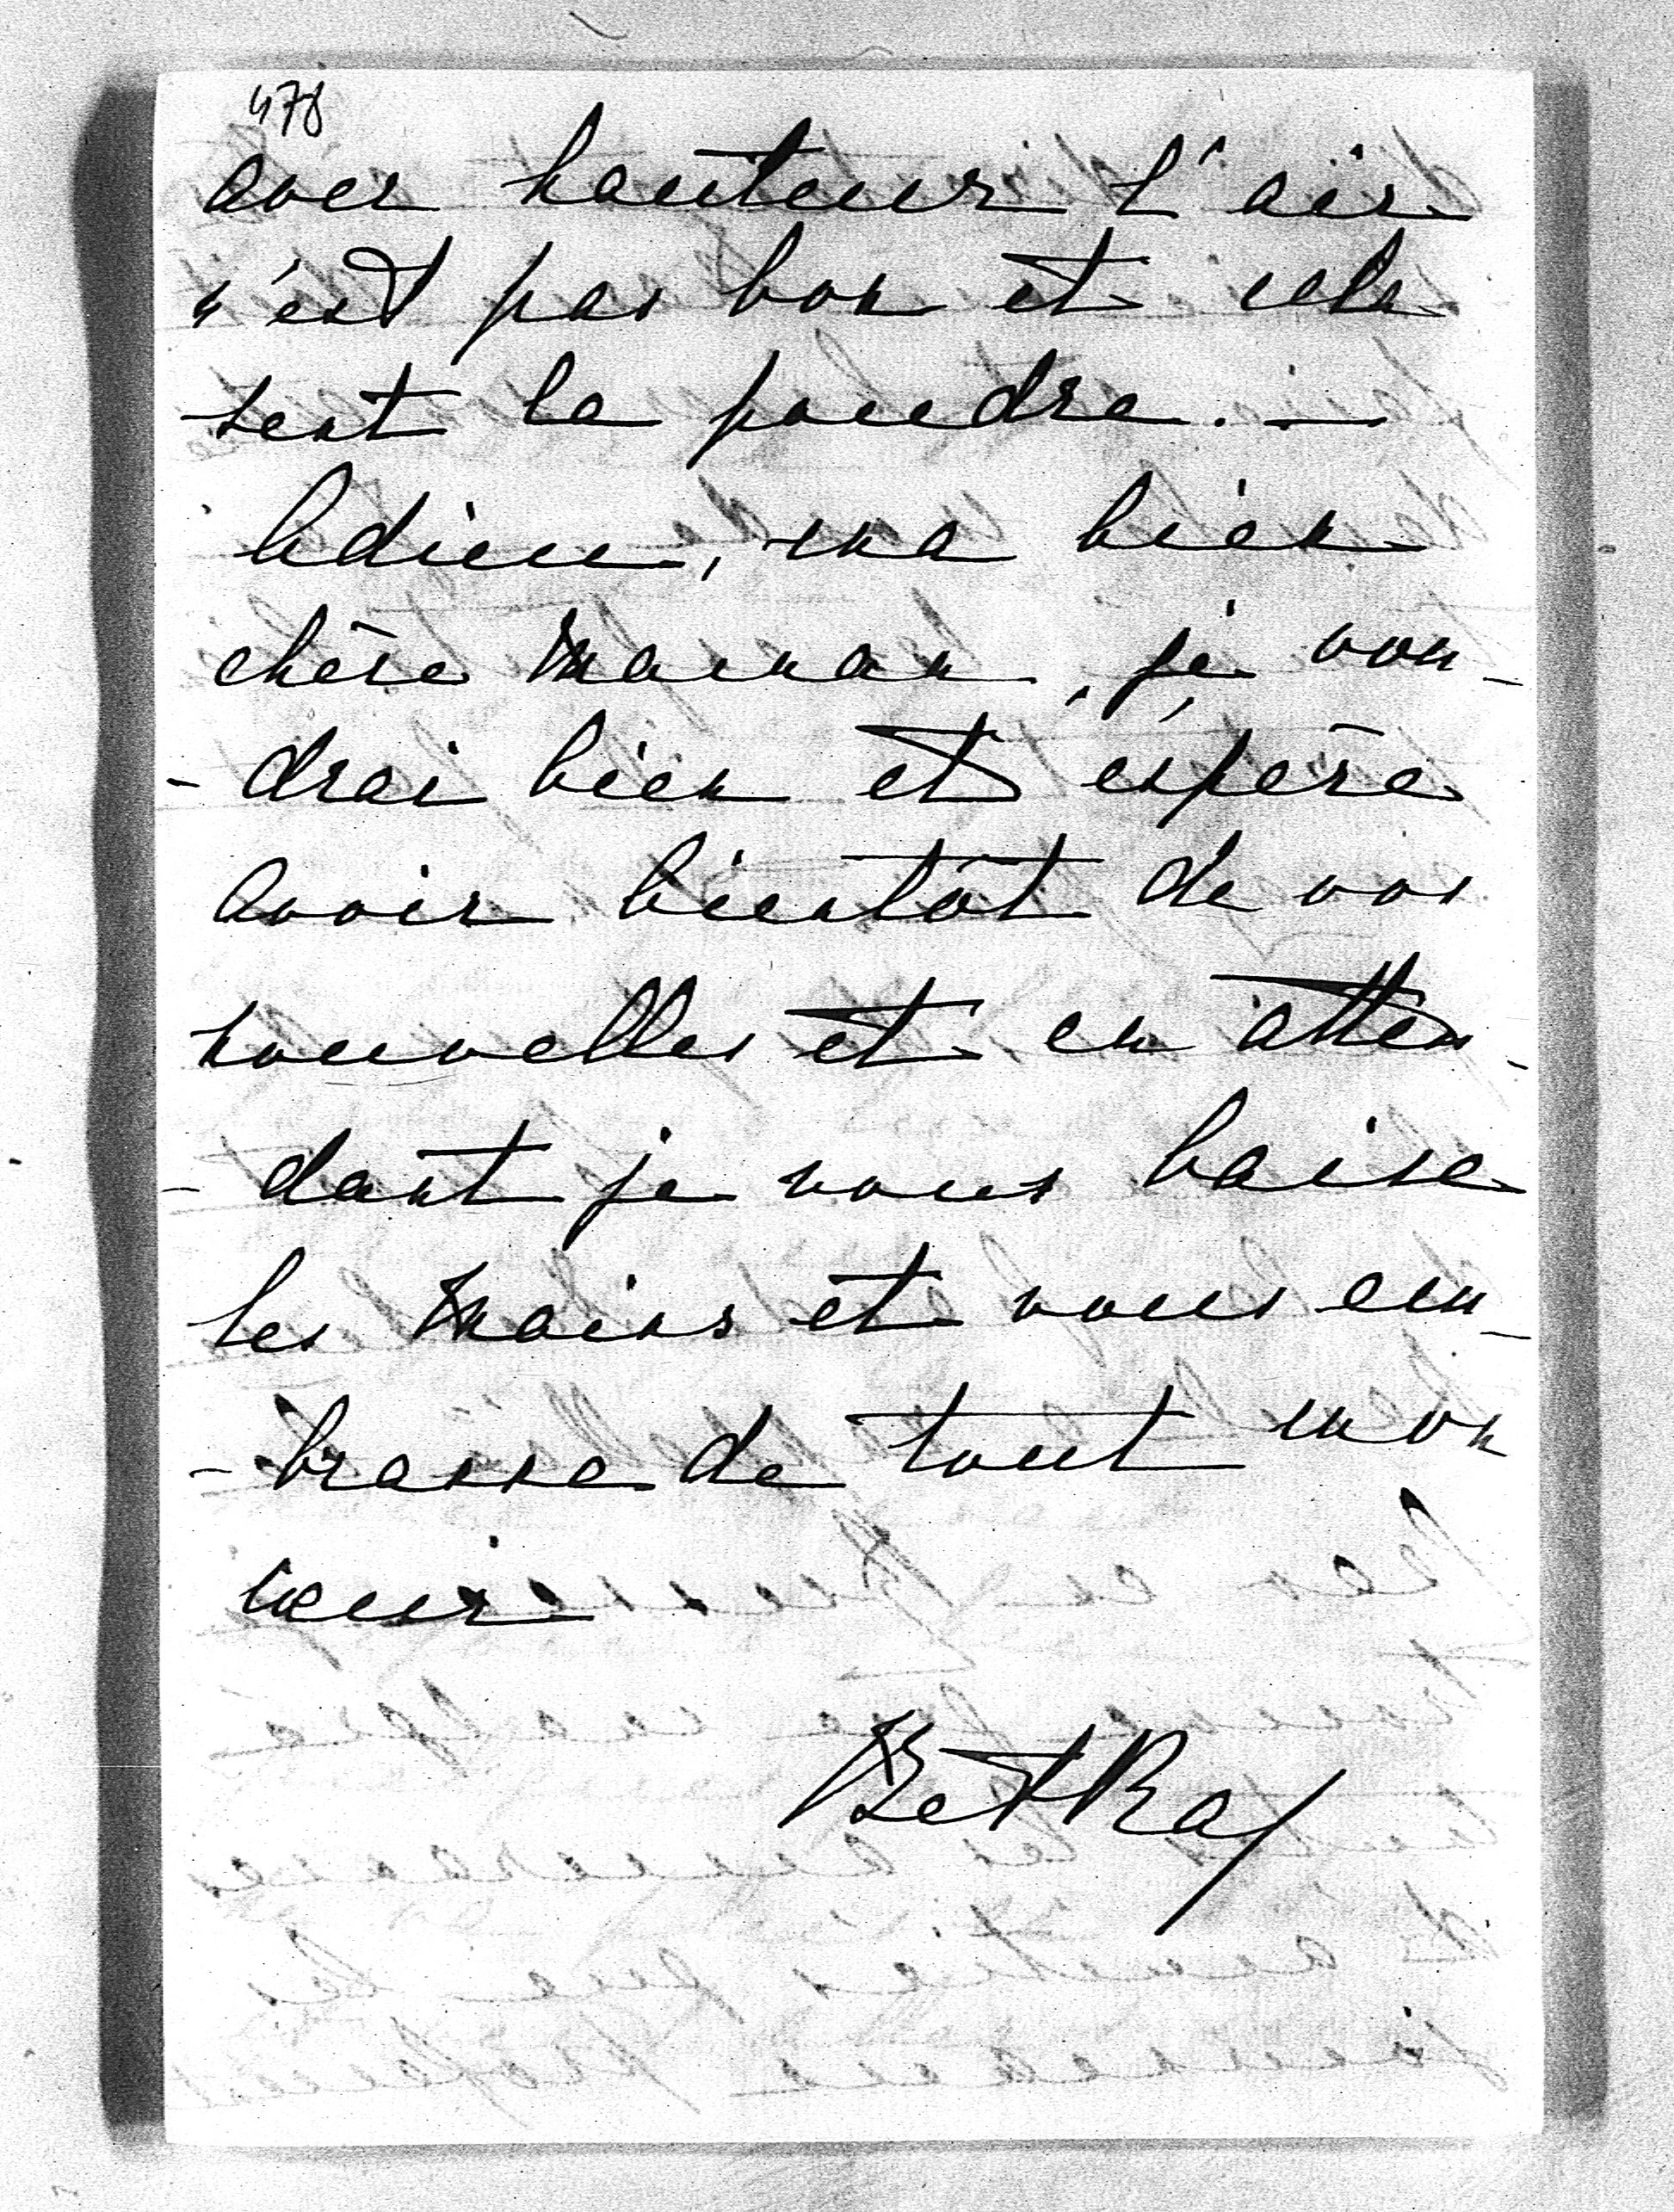 478
avec hauteur L'air
n'est pas bon et cela
sent la poudre. —
Adieu, ma bien
chère Maman, je vou-
-drai bien et espère
avoir bientôt de vos
nouvelles et en atten-
-dant je vous baise
les mains et vous em-
-brasse de tout mon
coeur